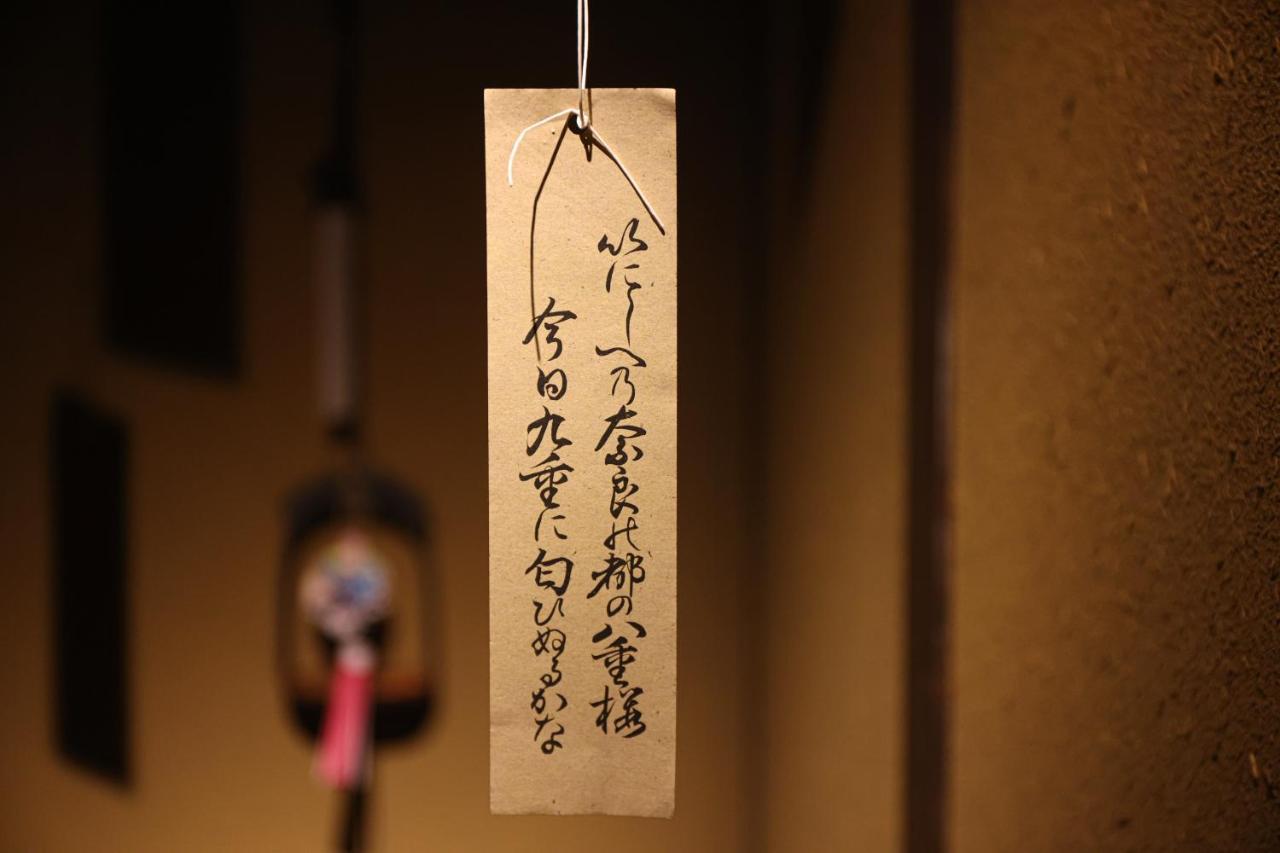 以にしへ乃奈良能都の八重櫻
今日九重に匂ひぬるかな